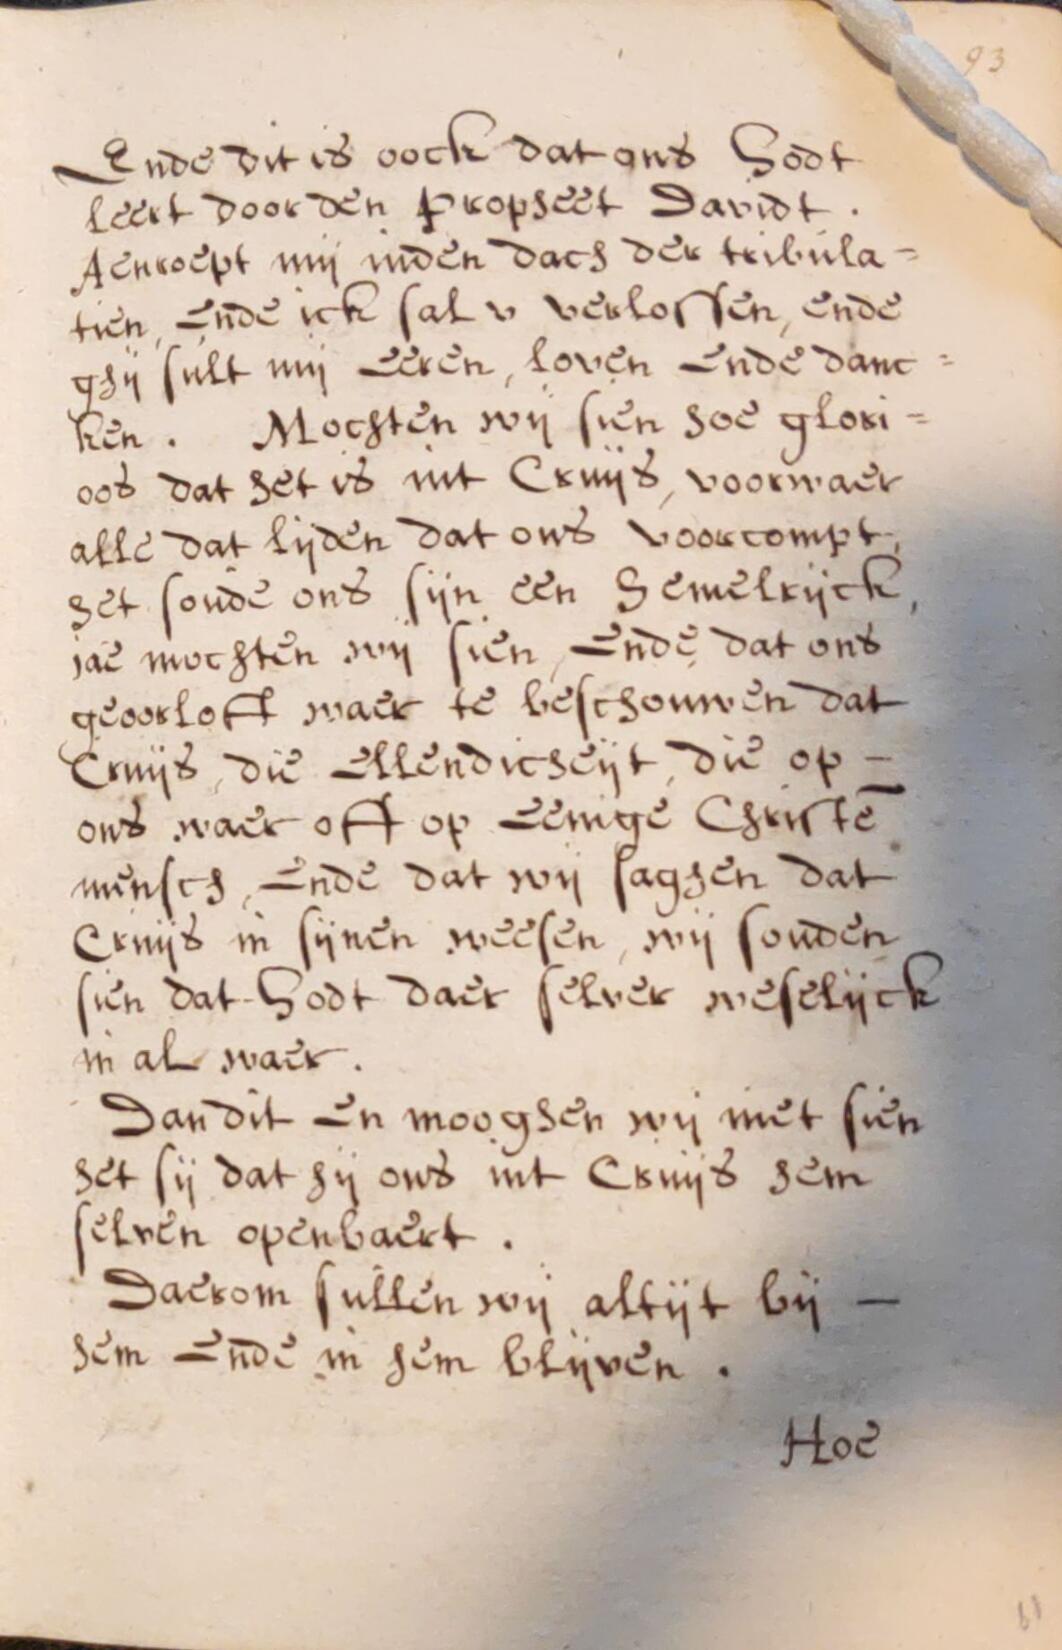 93
Ende dit is oock dat ons Godt
leert door den Propheet Davidt.
Aenroept mij inden dach der tribula=
tien, Ende ick sal v verlossen, ende
ghij sult mij Eeren, loven Ende danc=
ken. Mochten wij sien hoe glori=
oos dat het is int Cruijs, voorwaer
alle dat lijden dat ons voorcompt,
het soude ons sijn een Hemelrijck,
jae mochten wij sien, Ende dat ons
geoorloft waer te beschouwen dat
Cruijs, die Ellendicheijt, die op –
ons waer oft op Eenige Christē
mensch, Ende dat wij saghen dat
Cruijs in sijnen weesen, wij souden
sien dat Godt daer selver weselijck
in al waer.
Dan dit En mooghen wij niet sien
het sij dat hij ons int Cruijs hem
selven openbaert.
Daerom sullen wij altijt bij –
hem Ende in hem blijven.
Hoe